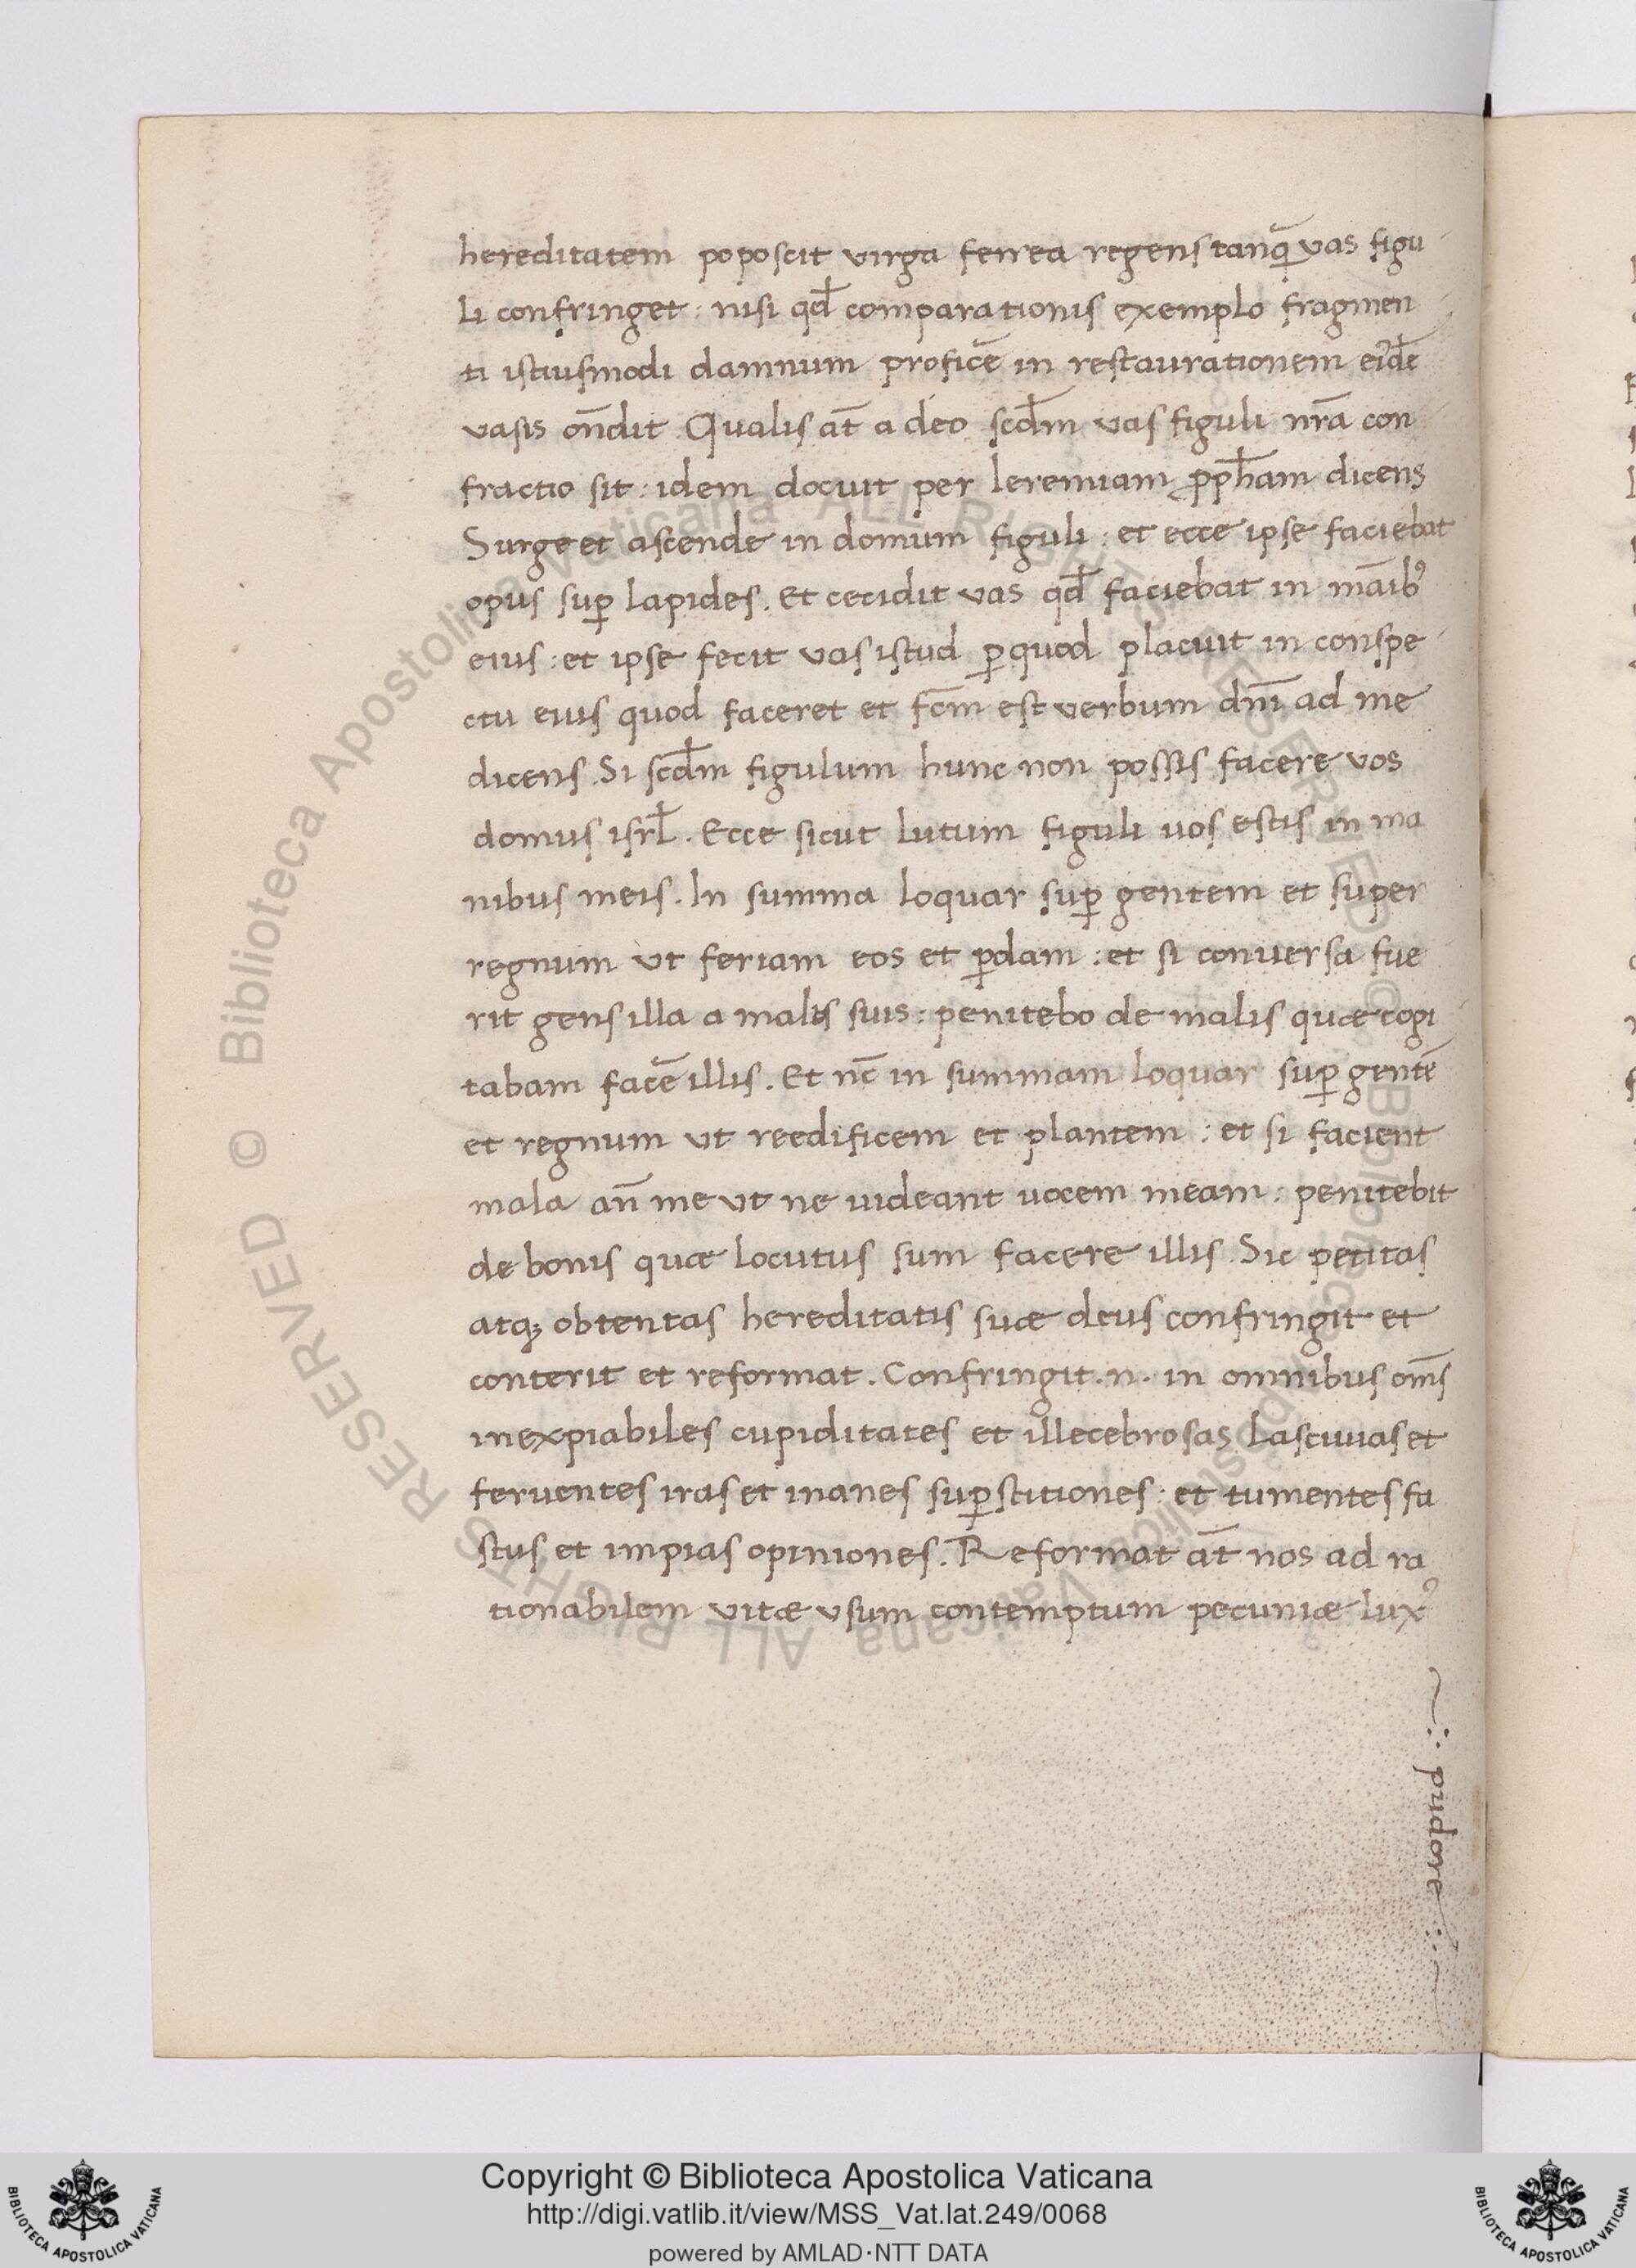 hereditatem poposcit virga ferrea regens tanq̃ vas figu
li confringet : nisi qd̄ comparationis exemplo fragmen
ti istiusmodi damnum proficẽ in restaurationem eiꝰdẽ
vasis on̄dit. Qualis at̄ a deo scd̄m vas figuli nr̄a con
fractio sit : idem docuit per Ieremiam ꝓph̄am dicens
Surge et ascende in domum figuli : et ecce ipse faciebat
opus suꝑ lapides. Et cecidit vas qd̄ faciebat in māibꝰ
eius : et ipse fecit vas istud ꝑquod placuit in conspe
ctu eius quod faceret et fc̄m est verbum dnī ad me
dicens. Si scd̄m figulum hunc non possis facere vos
domus isrl̄. Ecce sicut lutum figuli uos estis in ma
nibus meis. In summa loquar suꝑ gentem et super
regnum ut feriam eos et ꝑdam : et si conuersa fue
rit gens illa a malis suis : penitebo de malis quæ cogi
tabam facẽ illis. Et nc̄ in summam loquar suꝑ gentẽ
et regnum ut reedificem et plantem : et si facient
mala an̄ me ut ne uideant uocem meam : penitebit
de bonis quæ locutus sum facere illis. Sic petitas
atqꝫ obtentas hereditatis suæ deus confringit et
conterit et reformat. Confringit .n. in omnibus om̄s
inexpiabiles cupiditates et illecebrosas lasciuias et
feruentes iras et inanes suꝑstitiones : et tumentes fa
stus et impias opiniones. Reformat at̄ nos ad ra
tionabilem vitæ vsum contemptum pecuniæ luxꝰ
pudore
© Biblioteca Apostolica Vaticana ALL RIGHTS RESERVED © Biblioteca Apostolica Vaticana ALL RIGHTS RESERVED
Copyright © Biblioteca Apostolica Vaticana
http://digi.vatlib.it/view/MSS_Vat.lat.249/0068
powered by AMLAD·NTT DATA
BIBLIOTECA APOSTOLICA VATICANA
BIBLIOTECA APOSTOLICA VATICANA